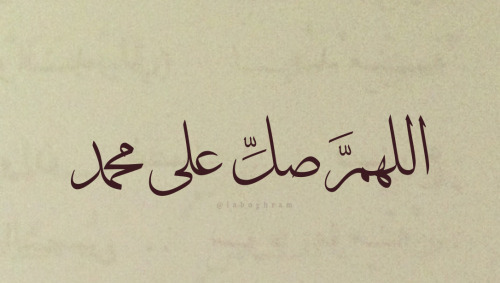 اللهمَّ صلِّ على محمد